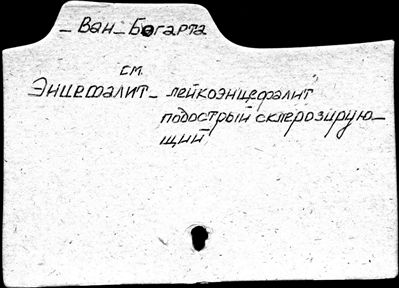 – Ван – Богарта
см.
Энцефалит – лейкоэнцефалит
подострый склерозирую–
щий